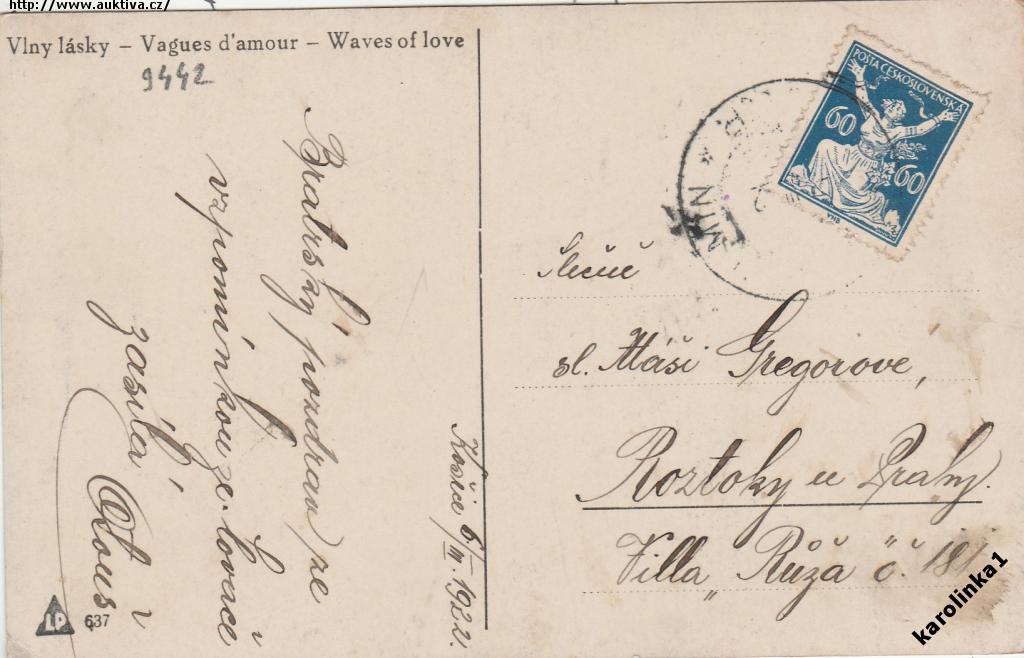 http://www.auktiva.cz/
Vlny lásky – Vagues d'amour – Waves of love
9442
Bratrský pozdrav ze
vzpomínkou ze
zasílá
Košice 6/III. 1922.
LP 637
POŠTA ČESKOSLOVENSKÁ
60
60
Slečně
sl. Máši Gregorove,
Roztoky u Prahy.
Villa „Růža" č. 181
karolinka1